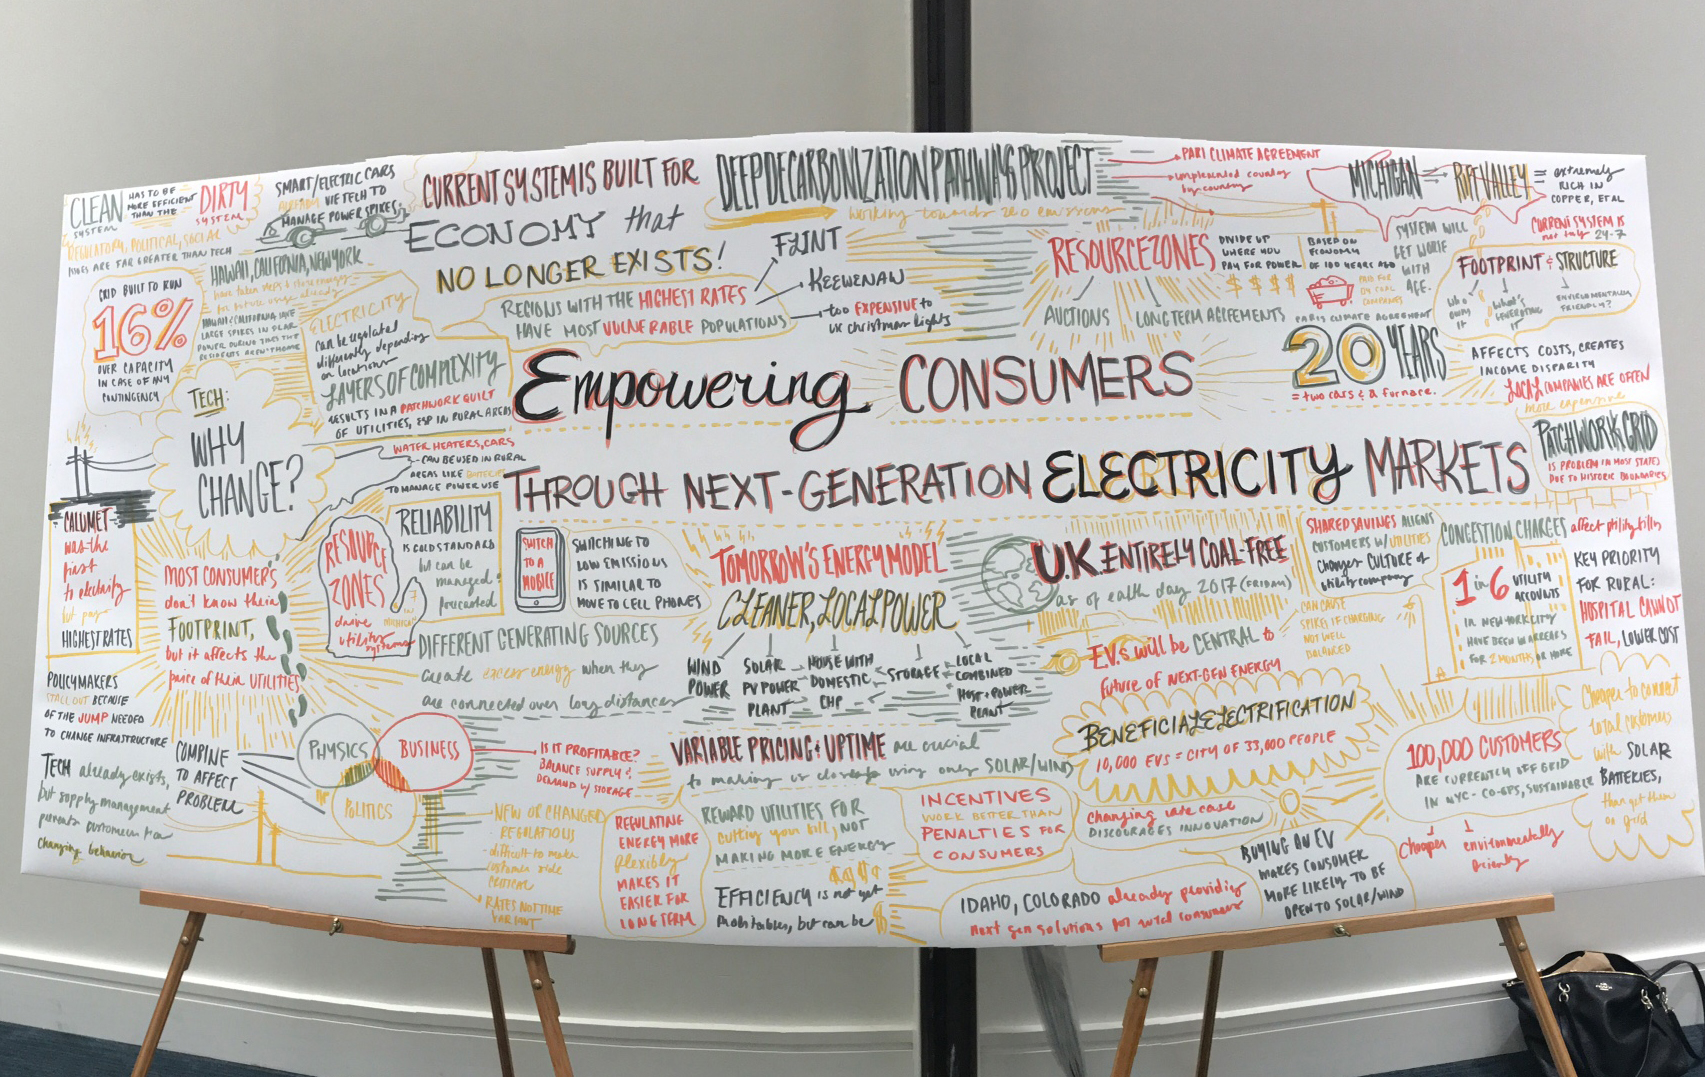 CLEAN SYSTEM
HAS TO BE
MORE EFFICIENT
THAN THE
DIRTY
SYSTEM
REGULATORY, POLITICAL, SOCIAL
ARE FAR GREATER THAN TECH
SMART/ELECTRIC CARS
ALREADY VIE TECH TO
MANAGE POWER SPIKES
HAWAII, CALIFORNIA, NEW YORK
GRID BUILT TO RUN
16%
OVER CAPACITY
IN CASE OF ANY
CONTINGENCY
LARGE SPIKES IN SOLAR
POWER DURING TIMES THE
RESIDENTS AREN'T HOME
ELECTRICITY
can be regulated
differently depending
on locations
LAYERS OF COMPLEXITY
RESULTS IN A PATCHWORK QUILT
OF UTILITIES, ESP IN RURAL AREAS
CURRENT SYSTEM IS BUILT FOR
ECONOMY that
NO LONGER EXISTS!
REGIONS WITH THE HIGHEST RATES
HAVE MOST VULNERABLE POPULATIONS
FLINT
KEEWENAW
too EXPENSIVE to
use christmas lights
DEEP DECARBONIZATION PATHWAYS PROJECT
working towards zero emissions
PARI CLIMATE AGREEMENT
implemented country
by country
RESOURCE ZONES
DIVIDE UP
WHERE YOU
PAY FOR POWER
$ $ $ $
BASED ON
ECONOMY
OF 100 YEARS AGO
PAID FOR
BY COAL
COMPANIES
AUCTIONS
LONG TERM AGREEMENTS
PARIS CLIMATE AGREEMENT
20 YEARS
= two cars & a furnace.
MICHIGAN
RIFT VALLEY
= extremely
RICH IN
COPPER, ET AL
SYSTEM WILL
GET WORSE
WITH
AGE.
CURRENT SYSTEM IS
not truly 24-7
FOOTPRINT & STRUCTURE
WHO OWNS IT
WHAT'S GENERATING IT
ENVIRONMENTALLY
FRIENDLY?
AFFECTS COSTS, CREATES
INCOME DISPARITY
LOCAL COMPANIES ARE OFTEN
more expensive
PATCHWORK GRID
IS PROBLEM IN MOST STATES
DUE TO HISTORIC BOUNDARIES
Empowering CONSUMERS
THROUGH NEXT-GENERATION ELECTRICITY MARKETS
TECH:
WHY
CHANGE?
WATER HEATERS, CARS
CAN BE USED IN RURAL
AREAS LIKE BATTERIES
TO MANAGE POWER USE
CALUMET
was the
first
to electrify
but pays
HIGHEST RATES
MOST CONSUMERS
don't know their
FOOTPRINT,
but it affects the
price of their UTILITIES
RESOURCE
ZONES
drive
utility
systems
MICHIGAN
RELIABILITY
IS GOLD STANDARD
but can be
managed &
forecasted
SWITCH
TO A
MOBILE
SWITCHING TO
LOW EMISSIONS
IS SIMILAR TO
MOVE TO CELL PHONES
DIFFERENT GENERATING SOURCES
create excess energy when they
are connected over long distances
TOMORROW'S ENERGY MODEL
CLEANER, LOCAL POWER
WIND
POWER
SOLAR
PV POWER
PLANT
HOUSE WITH
DOMESTIC
CHP
STORAGE
LOCAL
COMBINED
HEAT & POWER
PLANT
U.K. ENTIRELY COAL-FREE
as of earth day 2017 (FRIDAY)
EV.s will be CENTRAL to
future of NEXT-GEN ENERGY
CAN CAUSE
SPIKES IF CHARGING
NOT WELL
BALANCED
SHARED SAVINGS ALIGNS
CUSTOMERS W/ UTILITIES
Changes CULTURE of
utility company
CONGESTION CHARGES affect utility bills
1 in 6
UTILITY
ACCOUNTS
IN NEW YORK CITY
HAVE BEEN IN ARREARS
FOR 2 MONTHS OR MORE
KEY PRIORITY
FOR RURAL:
HOSPITAL CANNOT
FAIL, LOWER COST
POLICYMAKERS
STALL OUT BECAUSE
OF THE JUMP NEEDED
TO CHANGE INFRASTRUCTURE
TECH already exists,
but supply management
prevents customers from
changing behavior
COMBINE
TO AFFECT
PROBLEM
PHYSICS
BUSINESS
POLITICS
IS IT PROFITABLE?
BALANCE SUPPLY &
DEMAND W/ STORAGE
NEW OR CHANGED
REGULATIONS
difficult to make
customer side
CRITICAL
RATES NOT TIME
VARIANT
VARIABLE PRICING & UPTIME are crucial
to making us closer to using only SOLAR/WIND
REGULATING
ENERGY MORE
flexibly
MAKES IT
EASIER FOR
LONG TERM
REWARD UTILITIES FOR
cutting your bill, NOT
MAKING MORE ENERGY
EFFICIENCY is not yet
profitable, but can be
$
INCENTIVES
WORK BETTER THAN
PENALTIES FOR
CONSUMERS
BENEFICIAL ELECTRIFICATION
10,000 EVS = CITY OF 33,000 PEOPLE
changing rate case
DISCOURAGES INNOVATION
IDAHO, COLORADO already providing
next gen solutions for rural consumers
BUYING AN EV
MAKES CONSUMER
MORE LIKELY TO BE
OPEN TO SOLAR/WIND
100,000 CUSTOMERS
ARE CURRENTLY OFF GRID
IN NYC - CO-OPS, SUSTAINABLE
Cheaper
environmentally
friendly
Cheaper to connect
rural customers
with SOLAR
BATTERIES,
than get them
on grid